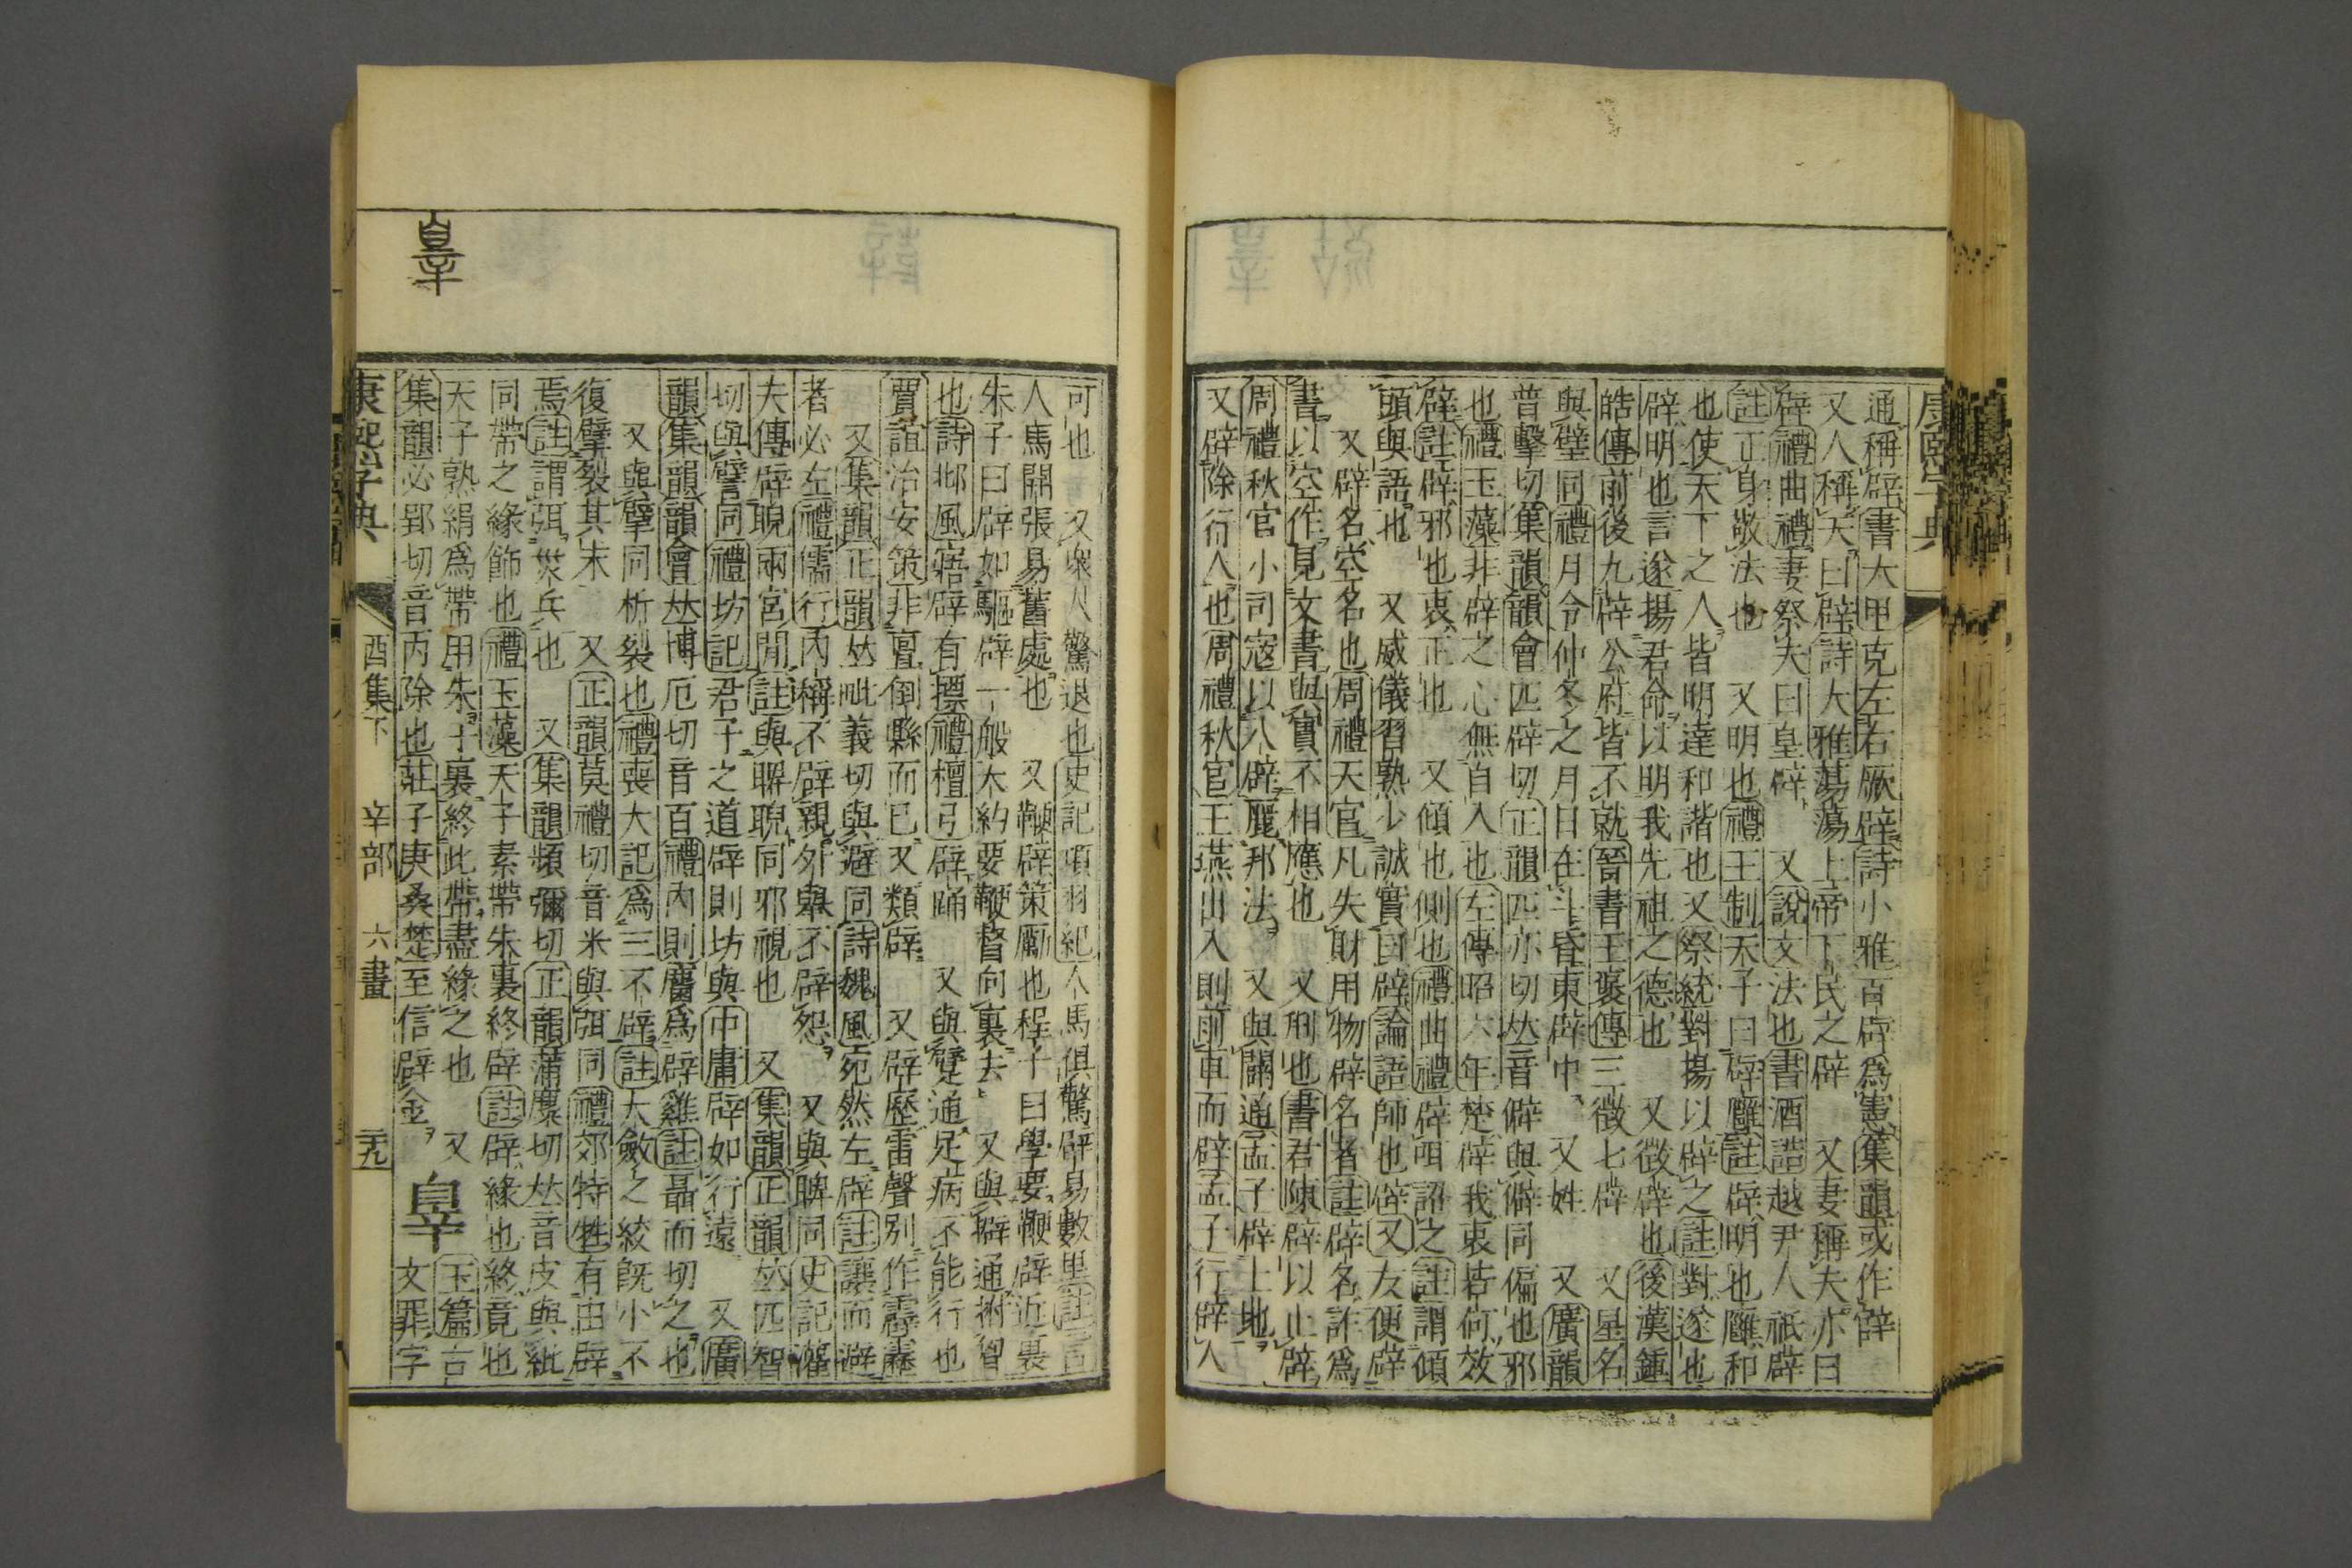 通稱辟書太甲克左右厥辟詩小雅百辟為憲集韻或作𨐨
又人稱天曰辟詩大雅蕩蕩上帝下民之辟　又妻稱夫亦曰
辟禮曲禮妻祭夫曰皇辟　又說文法也書酒誥越尹人祇辟
註正身敬法也　又明也禮王制天子曰辟廱註辟明也廱和
也使天下之人皆明達和諧也又祭統對揚以辟之註對遂也
辟明也言遂揚君命以明我先祖之德也　又徵辟也後漢鍾
皓傳前後九辟公府皆不就晉書王裒傳三徵七辟　又星名
與壁同禮月令仲冬之月日在斗昏東辟中　又姓　又廣韻
普擊切集韻韻會匹辟切正韻匹亦切𠀤音僻與僻同偏也邪
也禮玉藻非辟之心無自入也左傳昭六年楚辟我衷若何效
辟註辟邪也衷正也　又傾也側也禮曲禮辟咡詔之註謂傾
頭與語也　又威儀習熟少誠實曰辟論語師也辟又友便辟
　又辟名空名也周禮天官凡失財用物辟名者註辟名詐為
書以空作見文書與實不相應也　又刑也書君陳辟以止辟
周禮秋官小司寇以八辟麗邦法　又與闢通孟子辟土地
又辟除行人也周禮秋官王燕出入則前車而辟孟子行辟人
可也　又衆人驚退也史記項羽紀人馬俱驚辟易數里註言
人馬開張易舊處也　又鞭辟策勵也程子曰學要鞭辟近裏
朱子曰辟如驅辟一般大約要鞭督向裏去　又與擗通拊心
也詩邶風寤辟有摽禮檀弓辟踊　又與躄通足病不能行也
賈誼治安策非亶倒縣而已又類辟　又辟歷雷聲別作霹靂
　又集韻正韻𠀤毗義切與避同詩魏風宛然左辟註讓而避
者必左禮儒行內稱不辟親外舉不辟怨　又與睥同史記灌
夫傳辟睨兩宮閒註與睥睨同邪視也　又集韻正韻𠀤匹智
切與譬同禮坊記君子之道辟則坊與中庸辟如行遠　又廣
韻集韻韻會𠀤博厄切音百禮內則麕為辟雞註聶而切之也
　又與擘同析裂也禮喪大記為三不辟註大斂之絞旣小不
復擘裂其末　又正韻莫禮切音米與弭同禮郊特牲有由辟
焉註謂弭災兵也　又集韻頻彌切正韻蒲麋切𠀤音皮與紕
同帶之緣飾也禮玉藻天子素帶朱裏終辟註辟緣也終竟也
天子熟絹為帶用朱為裏終此帶盡緣之也　又
集韻必郢切音丙除也莊子庚桑楚至信辟金　辠　玉篇古
文罪字
辠
康熙字典　酉集下　辛部　六畫　二十九
康熙字典